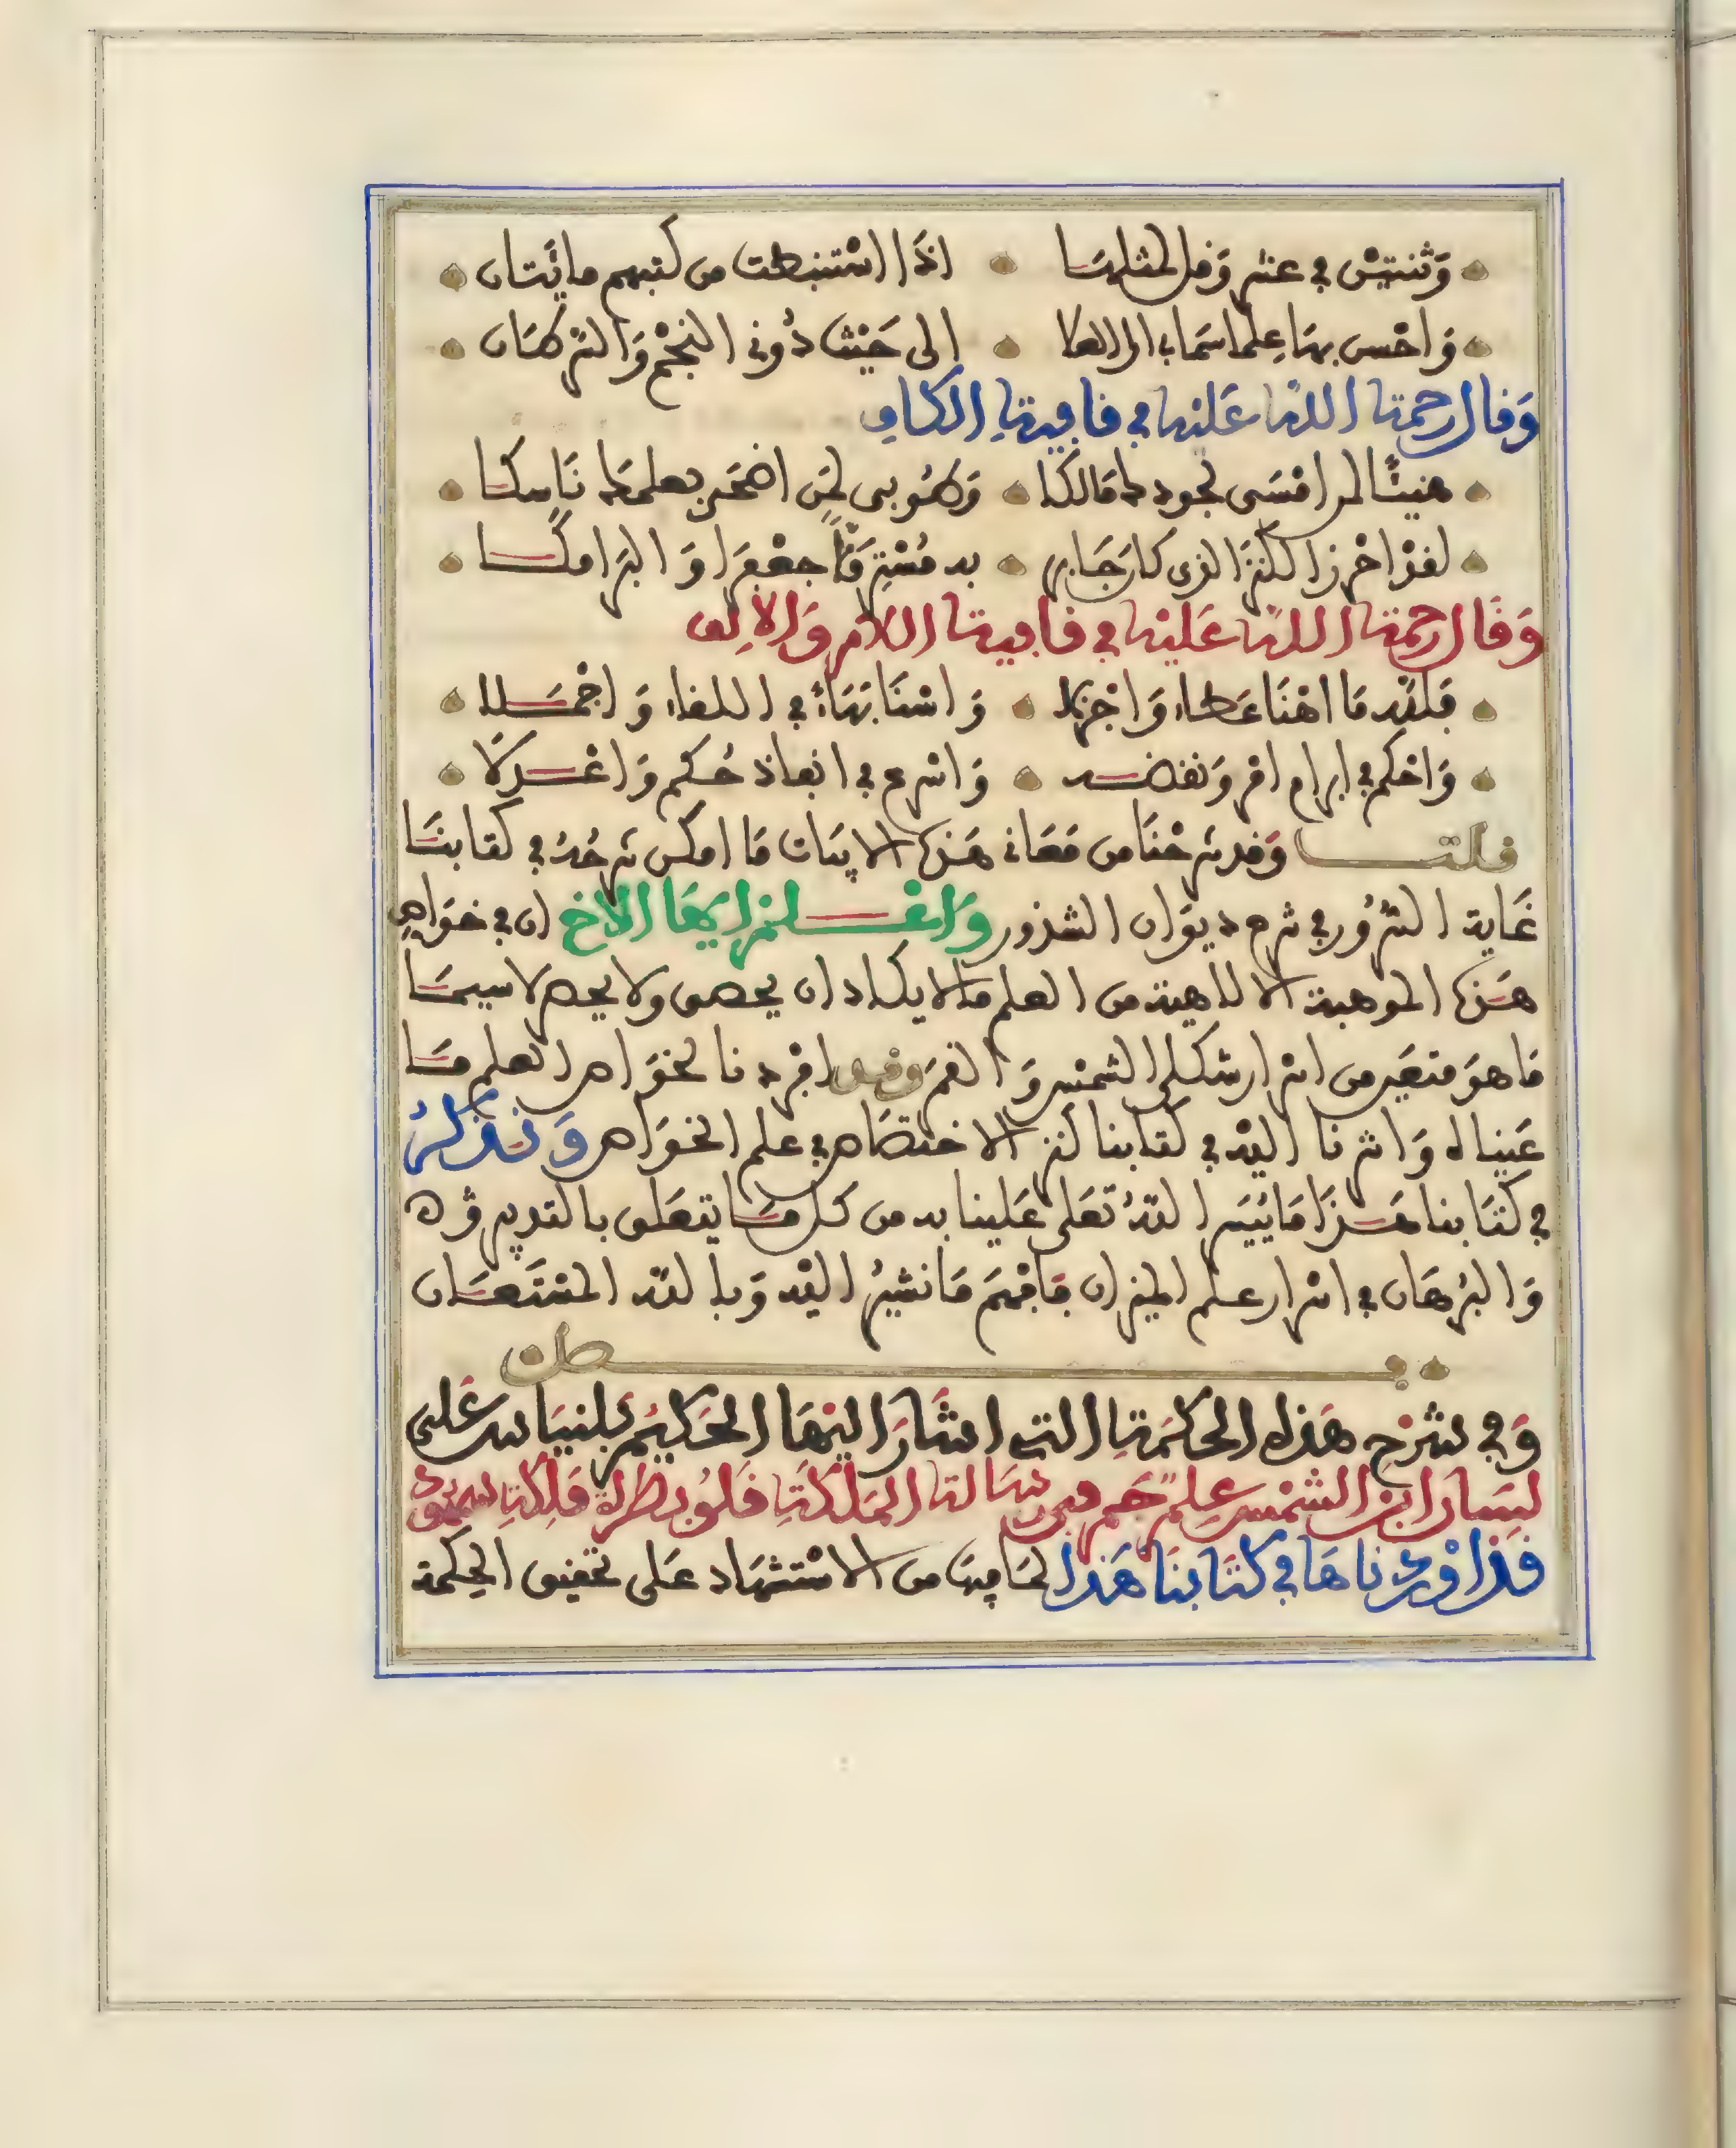 وَثنتيْن في عشر وَقل لمثلهَا اذَا اسْتنبطت من كتبهم مائَتان
وَاحْسن بهَا عِلما سَما بالى العلا الى حَيْث دُونى النجْم وَالسرطَان
وَقال رحمة الله عَليْه في قافية الكاف
هنيئًا لمن امْسَى لجود طمالكا وَطُوبى لمَن اضحَى بعلمكما نَاسكا
لقدْ احْرز الكنز الذى كان جَابر به مُسْتِرقًّا جعْفرَا وَالبرَامكا
وَقَال رحمة الله عَليْه في قافية اللام وَالألِف
فلله مَا اهْنَا عَطاء وَاجْزلا وَاسْنَا بهَاءً في اللقاء وَاجْمَلا
وَاحْكم في ابرام امْر وَنقضه وَاسْرع في انفاذ حُكم وَاعْدلا
قلت وَقد شرحْنَا من مَعَانى هَذه الابيَات مَا امكن شرحُهُ في كتابنَا
غَاية السّرُور في شرح ديوَان الشذور وَاعْلم ايهَا الاخ ان في خوَاص
هَذه الموهبة الالاهية من العلم ما لا يكاد ان يحصى ولا يحصر لا سيمَا
مَا هوَ متعَين من اسْرار شكلى الشمْس وَالقمَر وَقد افرْدنا لخوَاص العلم مَا
عَيناه وَاشرنا اليْه في كتابنا كنز الاختصَاص في علم الخوَاص وَنذكرُ
في كتَابنا هَذَا مَا يَيَسر اللهُ تعَلى عَلينا به من كل مَا يتعَلق بالتدبير وْ ه
وَالبُرهَان في اسْرار علم الميزان فافهَم مَا نشيرُ اليْه وَبالله المسْتَعَان
فصل
وَفي شرْح هَذه الحكمَة التى اشَارَ اليْهَا الحَكيم بلنيَاس عَلى
لسَان ابن الشمْس
قد اوْردْناهَا في كتَابنَا هَذا لمَا فيهَا من الاسْتشهَاد عَلى تحقيق الحِكمة